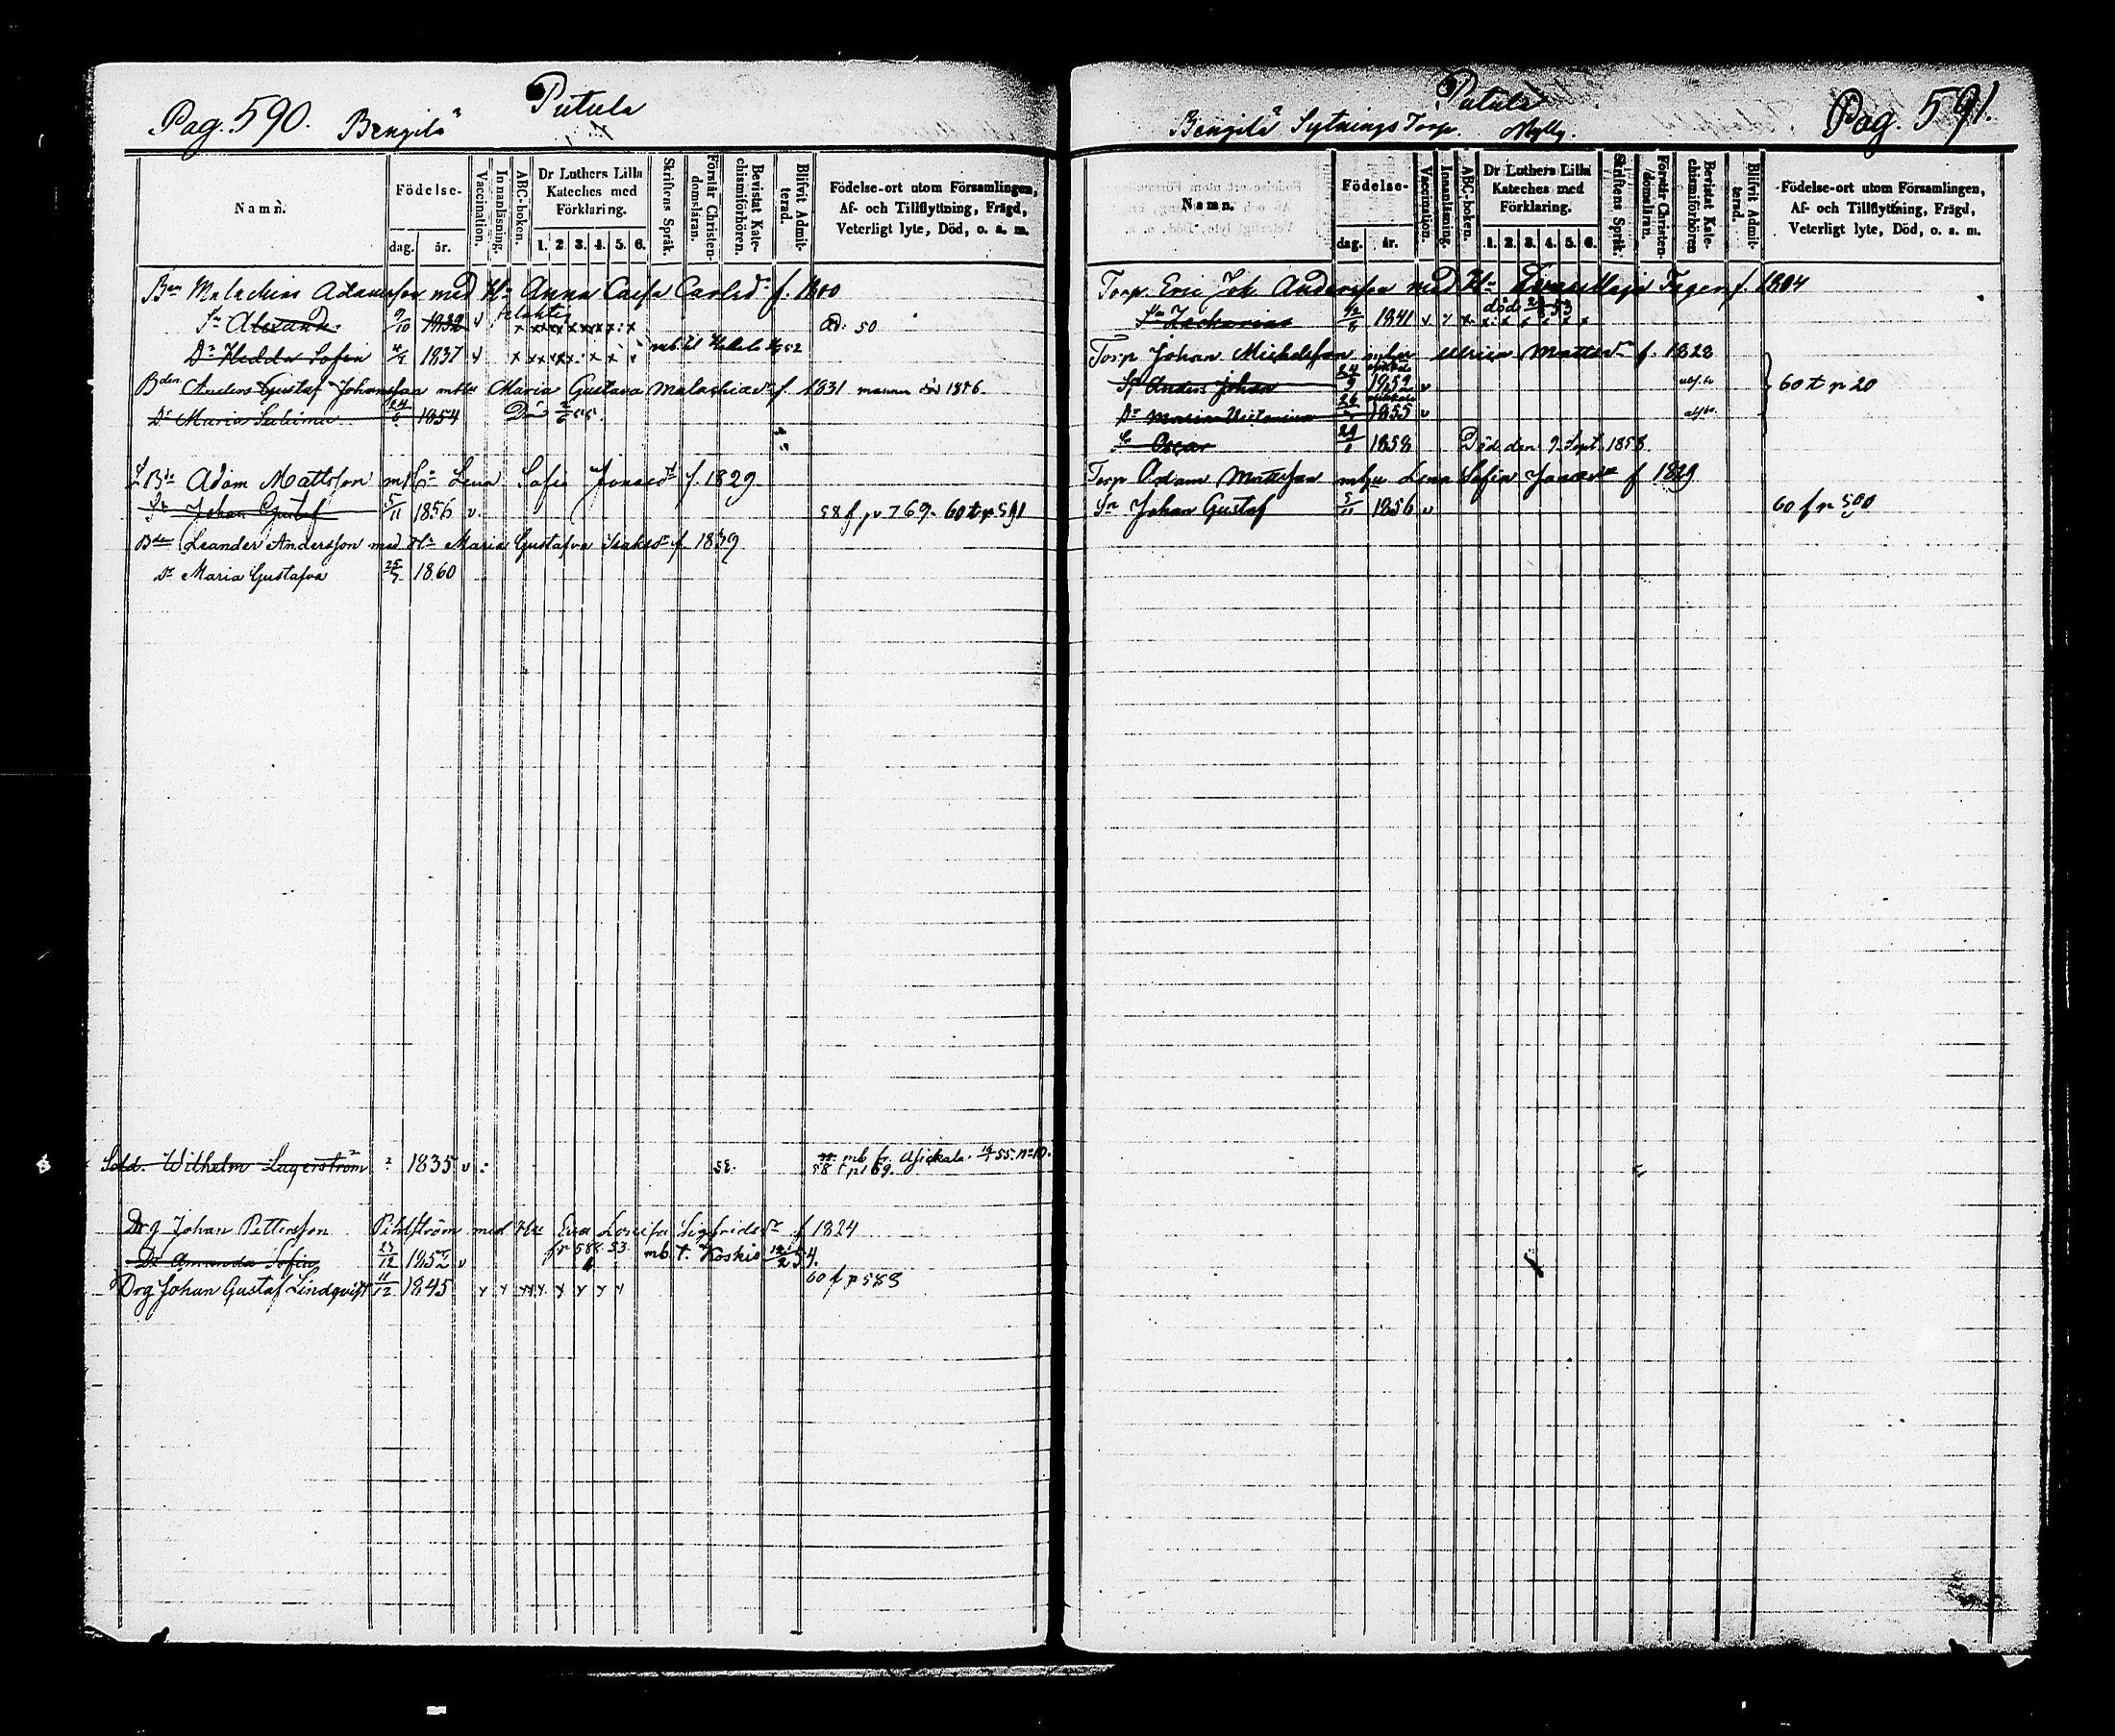 Pag. 590. Bengilä Putula
Namn.
Födelse-
dag. år.
Vaccination.
Innanläsning.
ABC-boken.
Dr Luthers Lilla Kateches med Förklaring.
1. 2. 3. 4. 5. 6.
Skriftens Språk.
Förstår Christendomsläran.
Bevistat Katechismiförhören.
Blifvit Admitterad.
Födelse-ort utom Församlingen,
Af- och Tillflyttning, Frägd,
Veterligt lyte, Död, o. s. m.
Malachias Adamsson med Anna Caisa Carlsdr f. 1800
Sn Alexand. 9/10 1832 v x x x x x x x x Ad. 50
Dr Hedda Sofia 1837 v x x x x x x mb til
Bden Anders Gustaf Johansson Maria Gustava Malachiasdr f. 1831 mannen död 1856.
Dr Maria Sabina 24/6 1854 Död
Adam Mattsson Lena Sofia Jonasdr f. 1829
Sn Johan Gustaf 5/11 1856 v. 58 f p 769. 60 t p 591
Bden Leander Andersson med Maria Gustafva Isaksdr f. 1839
Dr Maria Gustafva 1860
Sold. Wilhelm Lagerström 1835 v 58. mb fr. 55. No 10.
58 t p 169.
Drg Johan Pettersson Pihlström med Hu Eva Lovisa Sigfridsdr f 1824
Dr Amanda Sofia 23/12 1852 v fr 588. 53. mb. t. Koskis 54.
Drg Johan Gustaf Lindqvist 11/12 1845 v v v v v v v v 60 f p 588
Putula
Bengilä Sytnings Torp. Mylly. Pag. 591.
Namn.
Födelse-
dag. år.
Vaccination.
Innanläsning.
ABC-boken.
Dr Luthers Lilla Kateches med Förklaring.
1. 2. 3. 4. 5. 6.
Skriftens Språk.
Förstår Christendomsläran.
Bevistat Katechismiförhören
Blifvit Admitterad.
Födelse-ort utom Församlingen,
Af- och Tillflyttning, Frägd,
Veterligt lyte, Död, o. s. m.
Torp. Eric Joh. Andersson med f. 1804
Sn Zacharias 1841 v död 53
Torp Johan Mickelsson Ulrica Mattsdr f. 1828
Sn Anders Johan 24/9 1852 v 60 t p 20
Dr Maria Victorina 1855 v
Sn Oscar 1858 Död den 9 Sept. 1858
Torp Adam Mattsson Lena Sofia Jonasdr f 1829
Sn Johan Gustaf 5/11 1856 v 60 f p 590